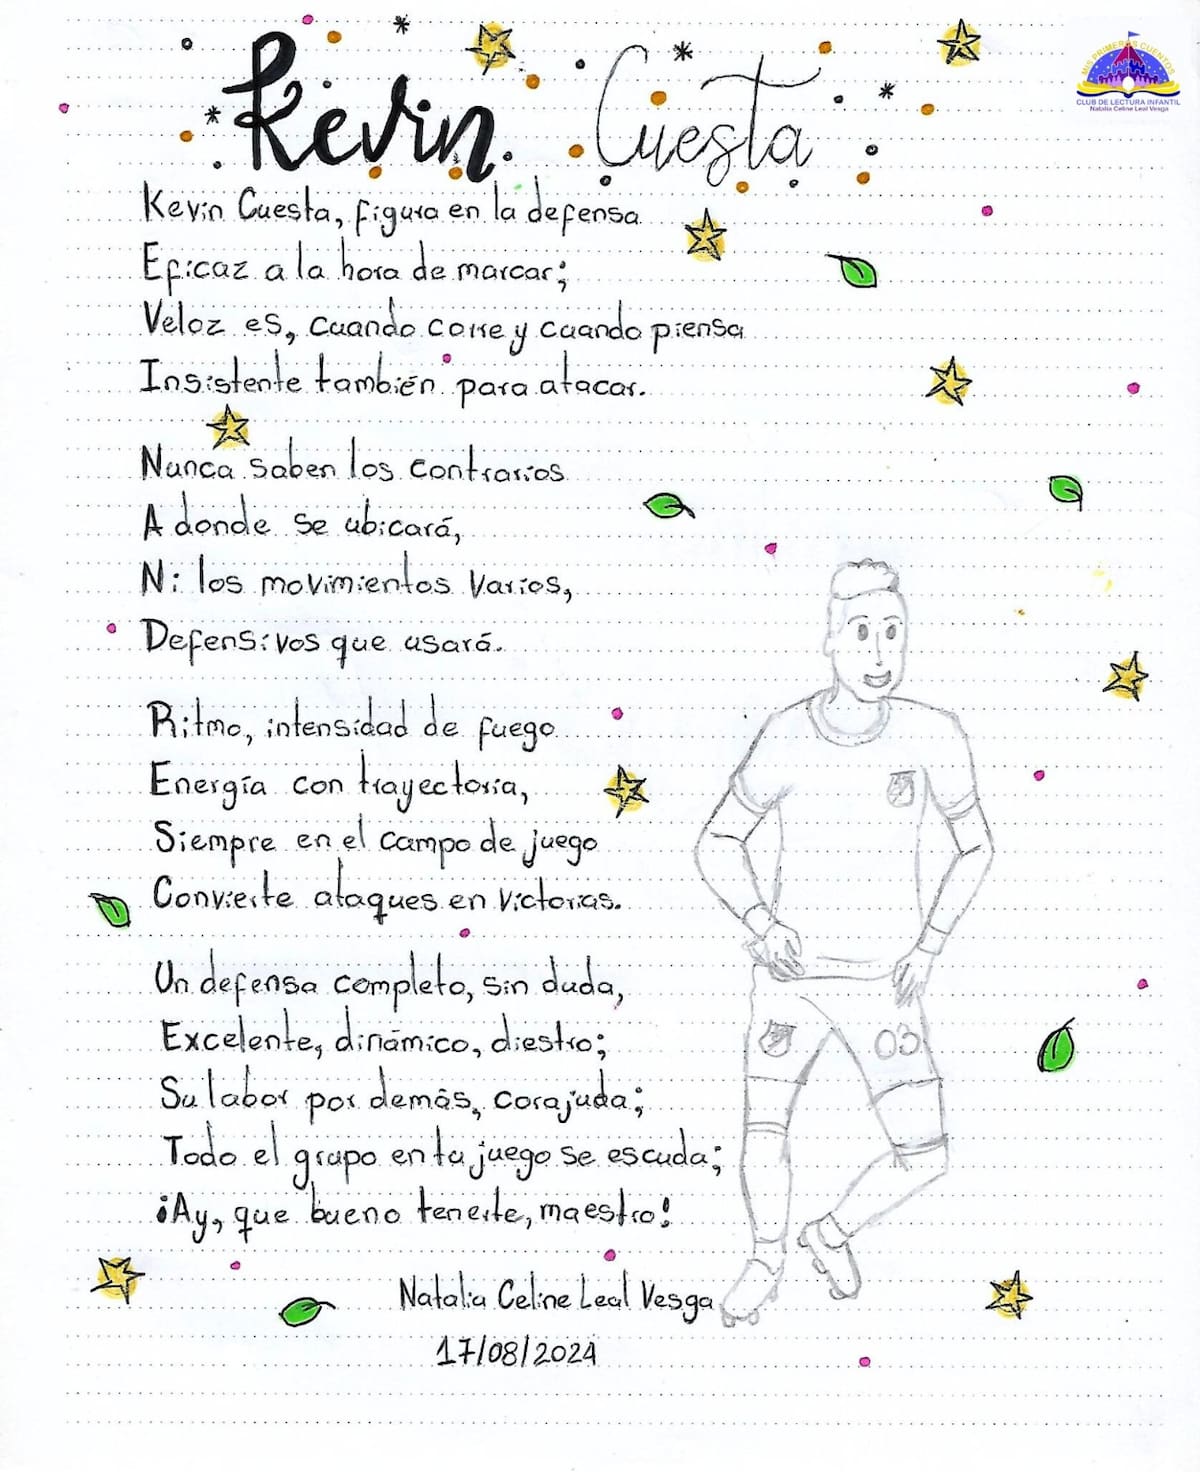 MIS PRIMEROS CUENTOS
CLUB DE LECTURA INFANTIL
Natalia Celine Leal Vesga
Kevin Cuesta
Kevin Cuesta, figura en la defensa
Eficaz a la hora de marcar;
Veloz es, cuando corre y cuando piensa
Insistente también para atacar.
Nunca saben los contrarios
A donde se ubicará,
Ni los movimientos varios,
Defensivos que usará.
Ritmo, intensidad de fuego
Energía con trayectoria,
Siempre en el campo de juego
Convierte ataques en victorias.
Un defensa completo, sin duda,
Excelente, dinámico, diestro;
Su labor por demás, corajuda;
Todo el grupo en tu juego se escuda;
¡Ay, que bueno tenerte, maestro!
03
Natalia Celine Leal Vesga
17/08/2024